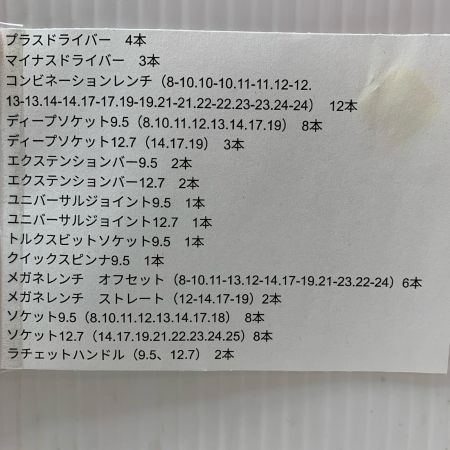 プラスドライバー　4本
マイナスドライバー　3本
コンビネーションレンチ（8-10.10-10.11-11.12-12.
13-13.14-14.17-17.19-19.21-21.22-22.23-23.24-24）　12本
ディープソケット9.5（8.10.11.12.13.14.17.19）　8本
ディープソケット12.7（14.17.19）　3本
エクステンションバー9.5　2本
エクステンションバー12.7　2本
ユニバーサルジョイント9.5　1本
ユニバーサルジョイント12.7　1本
トルクスビットソケット9.5　1本
クイックスピンナ9.5　1本
メガネレンチ　オフセット（8-10.11-13.12-14.17-19.21-23.22-24）6本
メガネレンチ　ストレート（12-14.17-19）2本
ソケット9.5（8.10.11.12.13.14.17.18）　8本
ソケット12.7（14.17.19.21.22.23.24.25）8本
ラチェットハンドル（9.5、12.7）　2本